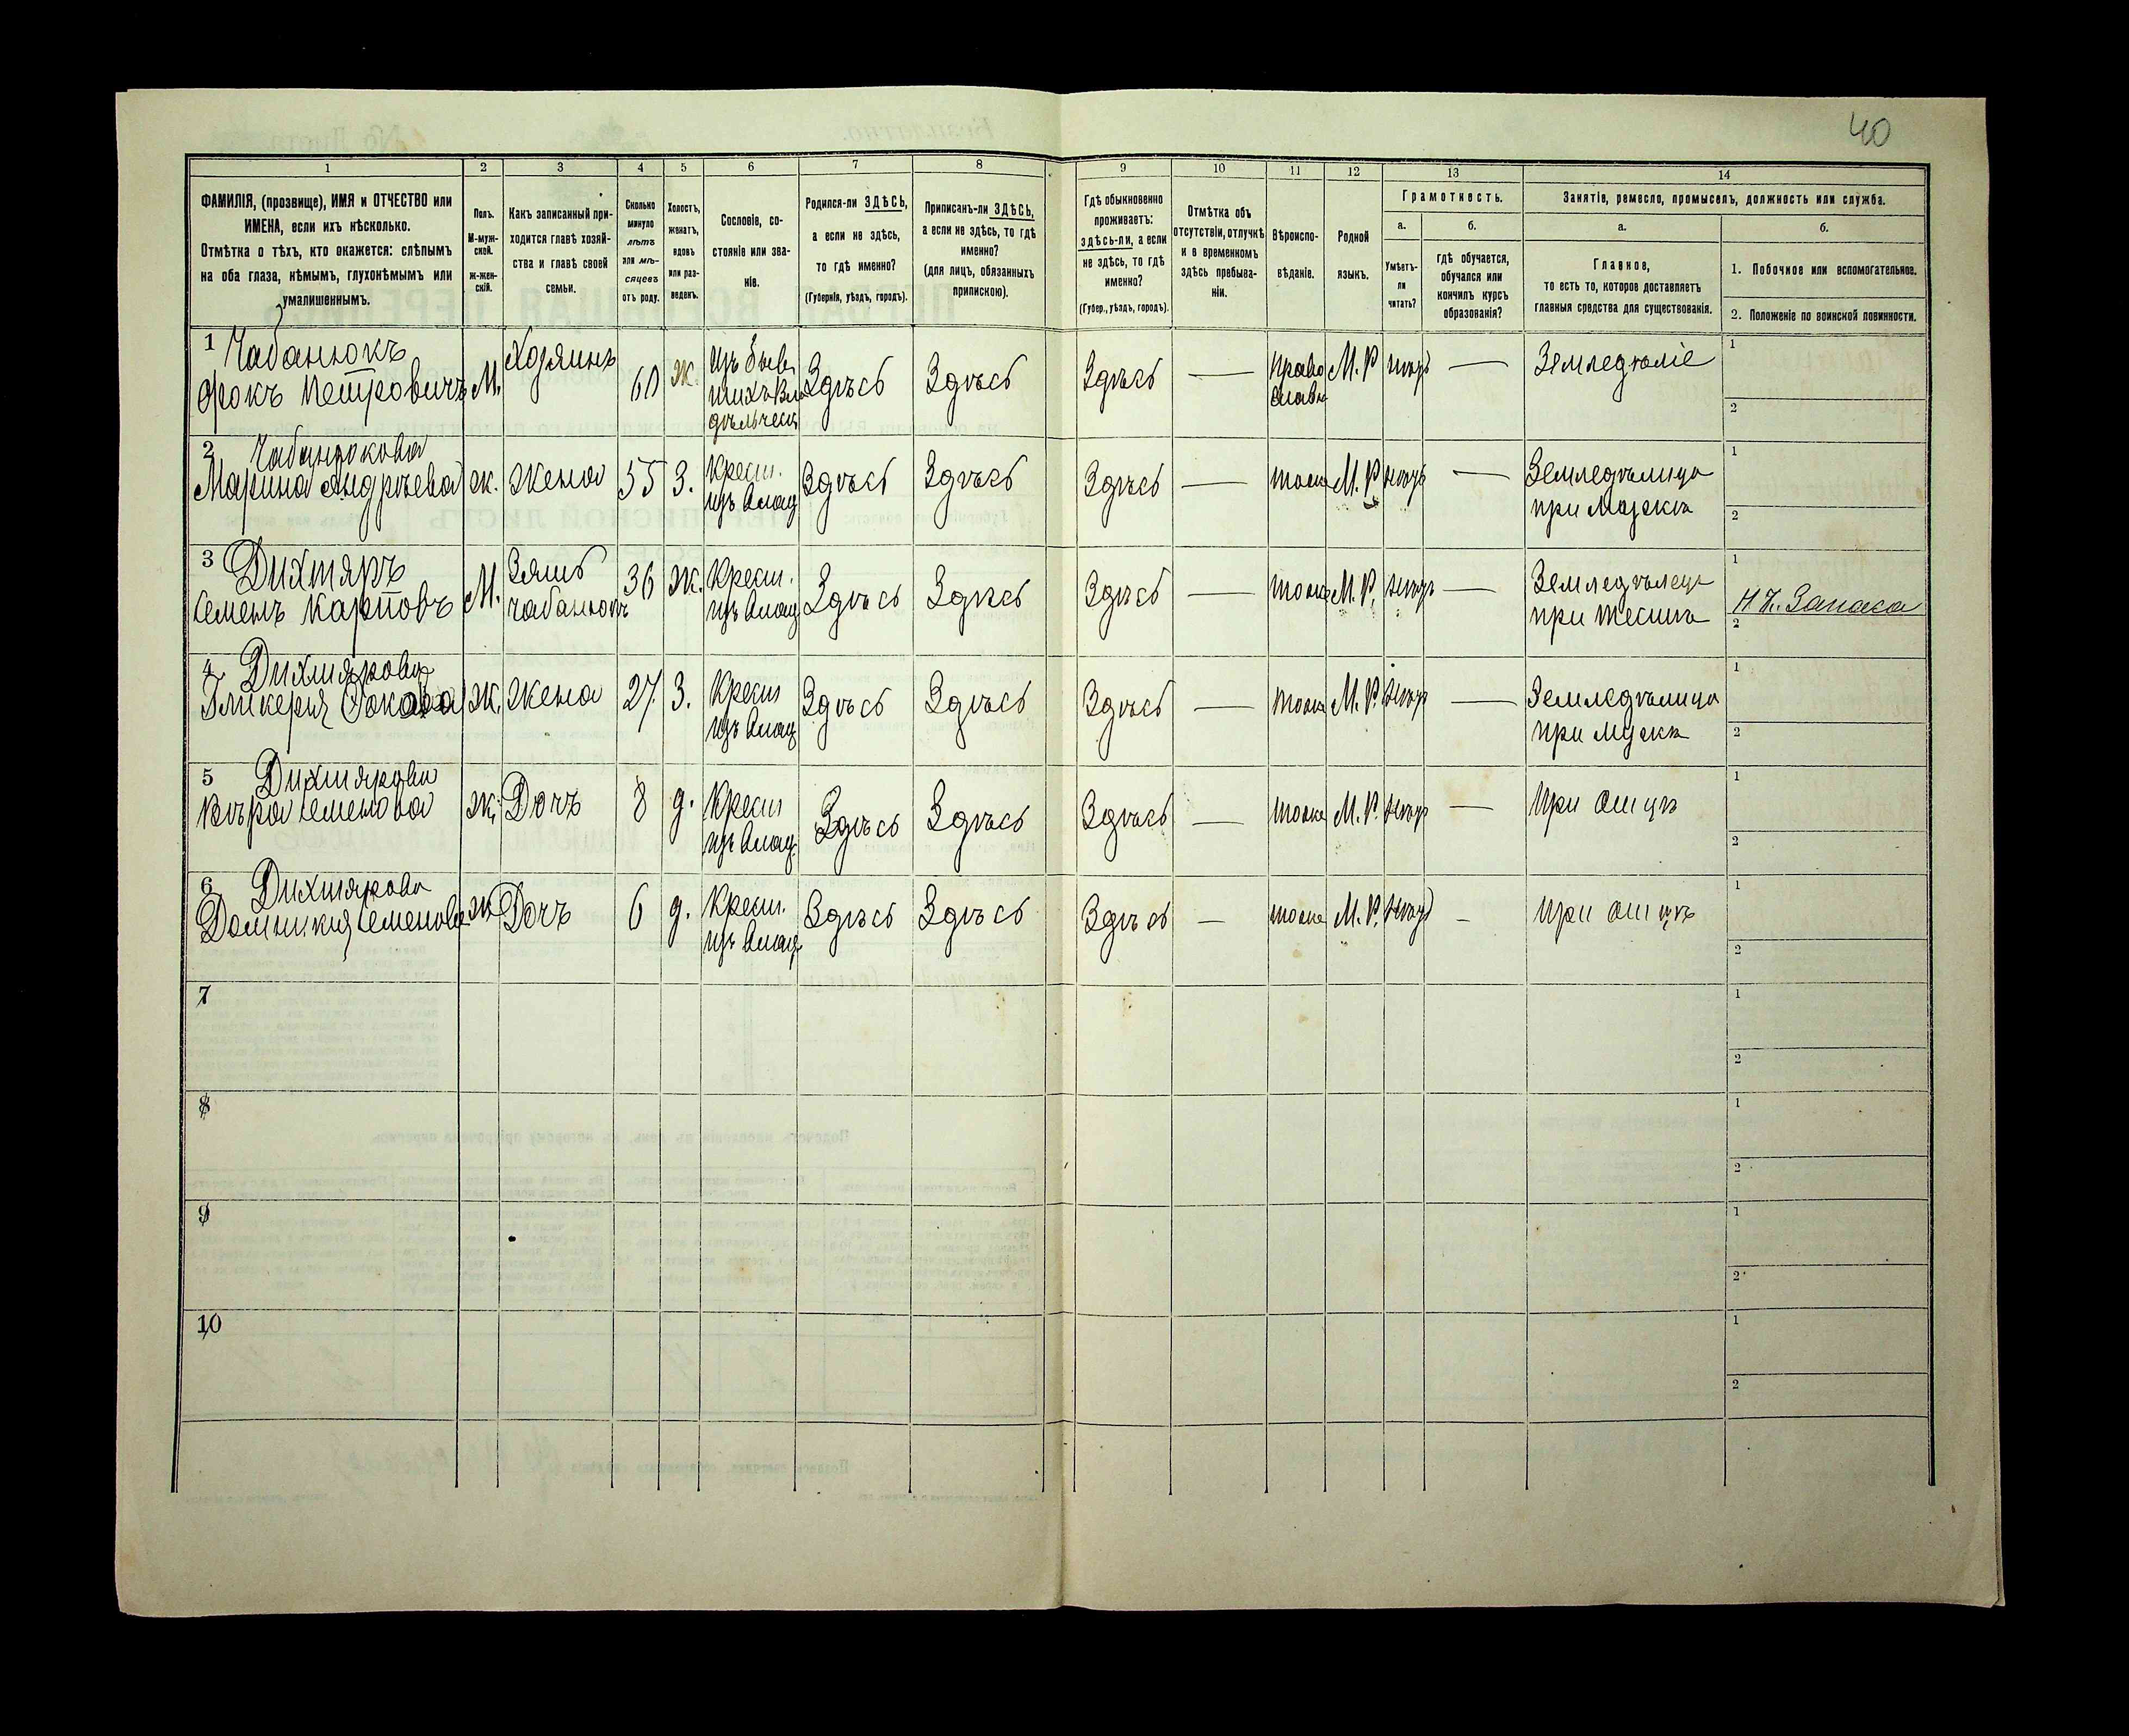 40
1 2 3 4 5 6 7 8 9 10 11 12 13 14
ФАМИЛІЯ, (прозвище), ИМЯ и ОТЧЕСТВО или
ИМЕНА, если ихъ нѣсколько.
Отмѣтка о тѣхъ, кто окажется: слѣпымъ
на оба глаза, нѣмымъ, глухонѣмымъ или
умалишеннымъ.
Полъ.
М-муж-
ской.
ж-жен-
скій.
Какъ записанный при-
ходится главѣ хозяй-
ства и главѣ своей
семьи.
Сколько
минуло
лѣтъ
или мѣ-
сяцевъ
отъ роду.
Холостъ,
женатъ,
вдовъ
или раз-
веденъ.
Сословіе, со-
стояніе или зва-
ніе.
Родился-ли ЗДѢСЬ,
а если не здѣсь,
то гдѣ именно?
(Губернія, уѣздъ, городъ).
Приписанъ-ли ЗДѢСЬ,
а если не здѣсь, то гдѣ
именно?
(для лицъ, обязанныхъ
припискою).
Гдѣ обыкновенно
проживаетъ:
здѣсь-ли, а если
не здѣсь, то гдѣ
именно?
(Губер., уѣздъ, городъ).
Отмѣтка объ
отсутствіи, отлучкѣ
и о временномъ
здѣсь пребыва-
ніи.
Вѣроиспо-
вѣданіе.
Родной
языкъ.
Грамотность.
а.
Умѣетъ-
ли
читать?
б.
гдѣ обучается,
обучался или
кончилъ курсъ
образованія?
Занятіе, ремесло, промыселъ, должность или служба.
а.
Главное,
то есть то, которое доставляетъ
главныя средства для существованія.
б.
1. Побочное или вспомогательное.
2. Положеніе по воинской повинности.
1 Чабанюкъ
Фокъ Петровичъ
М.
Хозяинъ
60
ж.
Изъ быв
шихъ Вла
дѣльческ
Здѣсь
Здѣсь
Здѣсь
—
Право
Славн
М. Р
—
Земледѣліе
1
2
2 Чабанюкова
Марина Андрѣева
ж.
Жена
55
З.
Крест.
Здѣсь
Здѣсь
Здѣсь
—
тоже
М. Р
—
Земледѣлица
при
1
2
3 Дихтяръ
Семенъ Карповъ
М.
Зять
Чабанюкъ
36
Ж.
Крест.
Здѣсь
Здѣсь
Здѣсь
тоже
М. Р.
—
Земледѣлецъ
при тестѣ
1
2
4 Дихтярова
Гликерія Фокова
Ж.
Жена
27.
З.
Крест
Здѣсь
Здѣсь
Здѣсь
—
тоже
М. Р.
—
Земледѣлица
при
1
2
5 Дихтярова
Вѣра Семенова
Ж.
Дочъ
8
д.
Крест
Здѣсь
Здѣсь
Здѣсь
—
тоже
М. Р.
—
При отцѣ
1
2
6 Дихтярова
Домникія Семенова
Ж
Дочъ
6
д.
Крест.
Здѣсь
Здѣсь
Здѣсь
—
тоже
М. Р.
—
При отцѣ
1
2
7
1
2
8
1
2
9
1
2
10
1
2